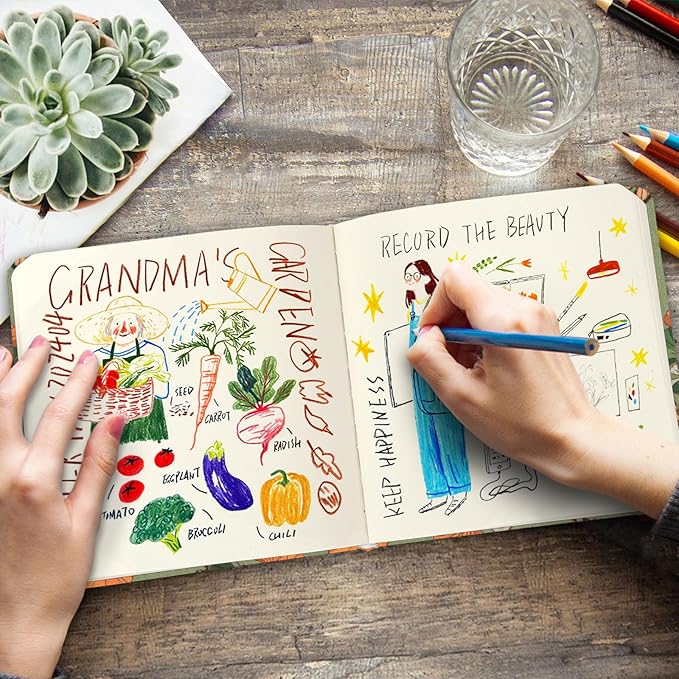 GRANDMA'S
GARDEN
SEED
CARROT
RADISH
EGGPLANT
TOMATO
BROCCOLI
CHILI
RECORD THE BEAUTY
KEEP HAPPINESS